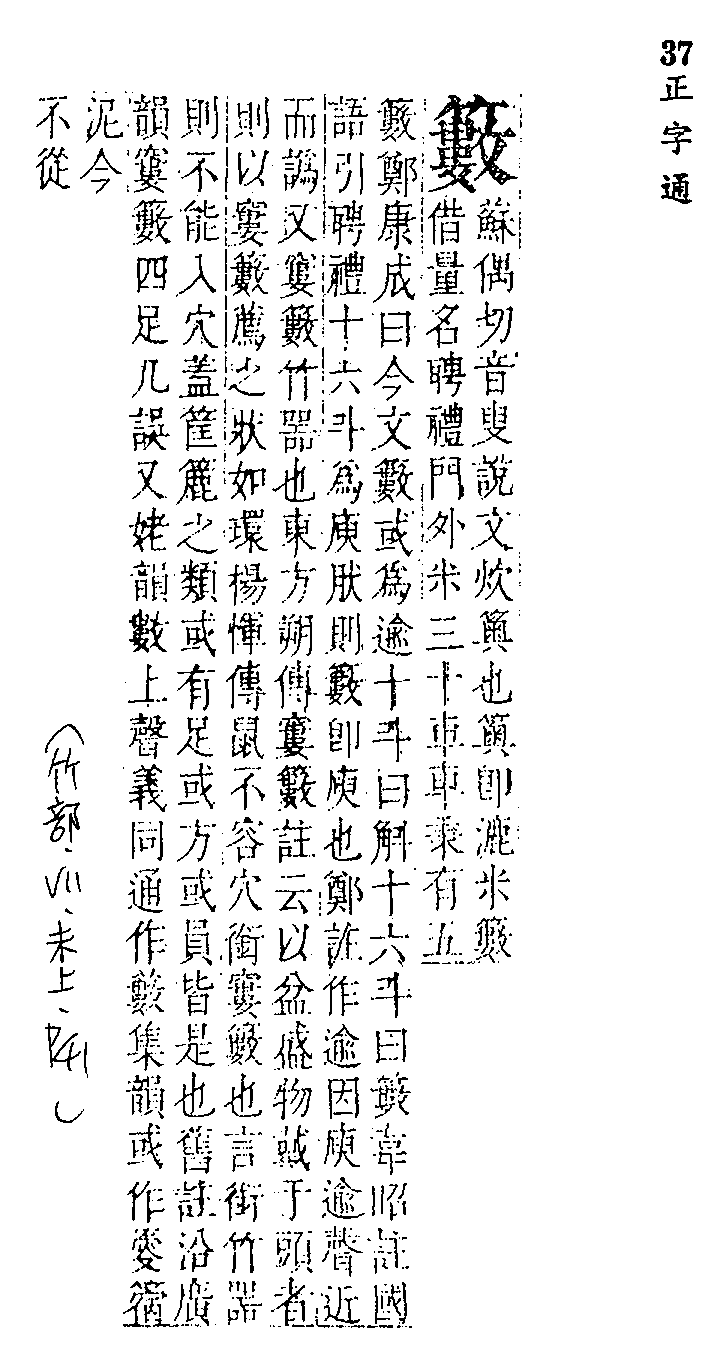 37 正字通
籔
蘇偶切音叟說文炊䉛也䉛卽漉米籔
借量名聘禮門外米三十車車秉有五
籔鄭康成曰今文籔或爲逾十斗曰斛十六斗曰籔韋昭註國
語引聘禮十六斗爲庾肰則籔卽庾也鄭註作逾因庾逾聲近
而譌又窶籔竹器也東方朔傳窶籔註云以盆盛物戴于頭者
則以窶籔薦之狀如環楊惲傳鼠不容穴銜窶籔也言銜竹器
則不能入穴蓋筐簏之類或有足或方或員皆是也舊註沿廣
韻窶籔四足几誤又姥韻數上聲義同通作籔集韻或作
泥今
不從
(竹部·VII·未上·